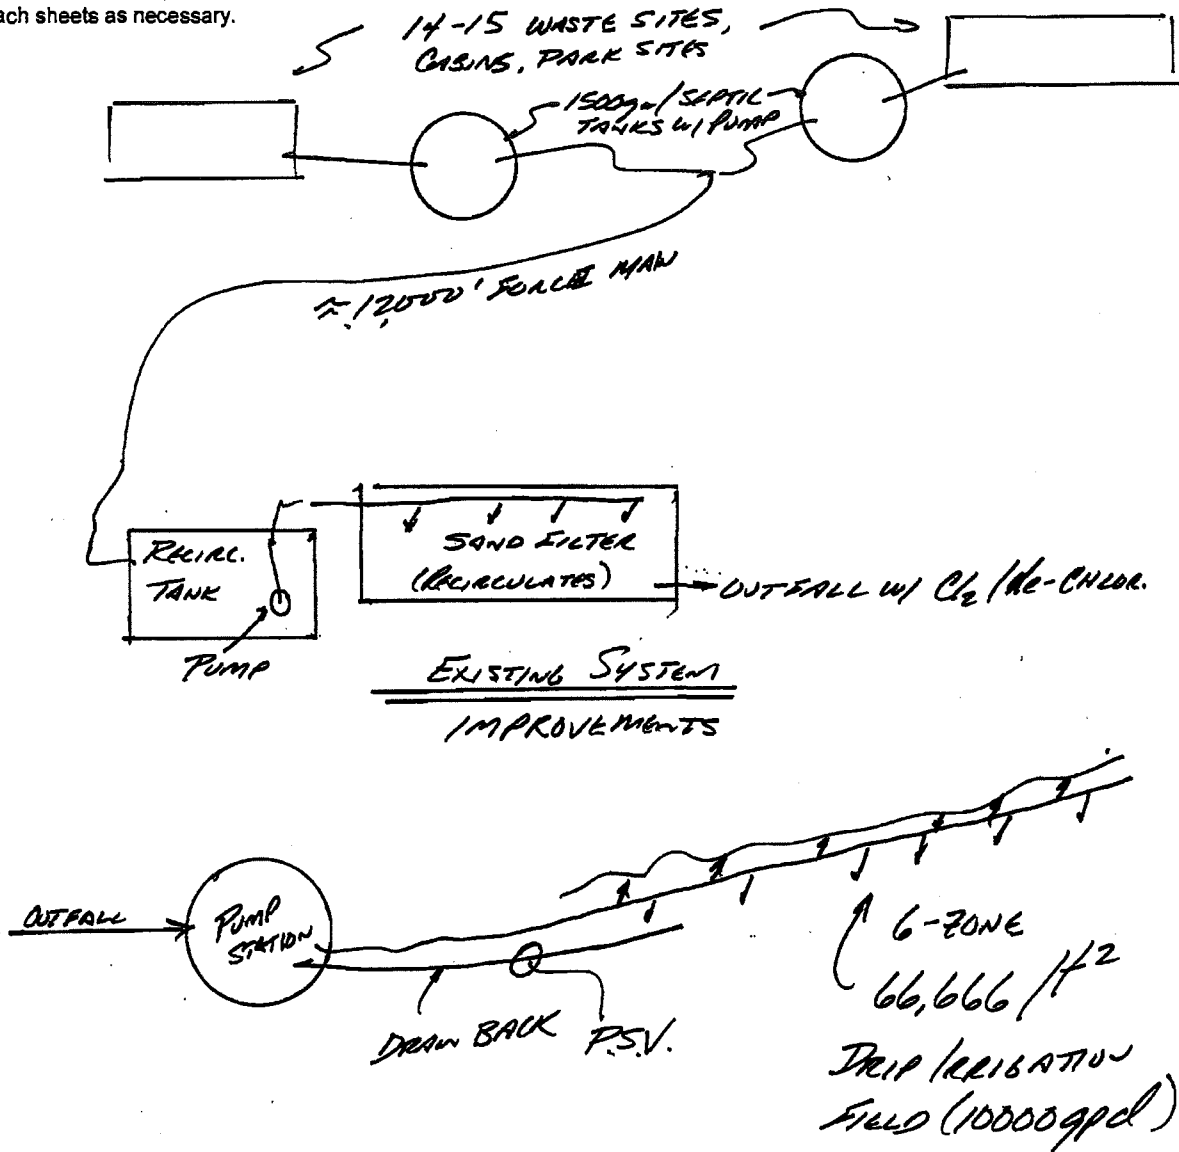 ach sheets as necessary.
14-15 WASTE SITES,
CABINS, PARK SITES
1500gal SEPTIC
TANKS W/ PUMP
≈ 12000' FORCE MAIN
RECIRC.
TANK
PUMP
SAND FILTER
(RECIRCULATES)
OUTFALL W/ Cl2/de-CHLOR.
EXISTING SYSTEM
IMPROVEMENTS
OUTFALL
PUMP
STATION
DRAW BACK
P.S.V.
6-ZONE
66,666 ft2
DRIP IRRIGATION
FIELD (10000gpd)